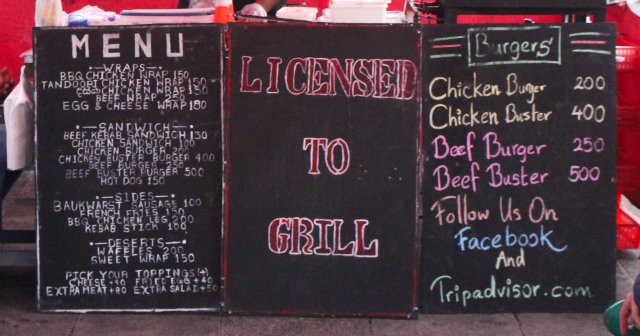 MENU
WRAPS
BBQ CHICKEN WRAP 150
TANDOORI CHICKEN WRAP 150
CHICKEN WRAP 150
BEEF WRAP 250
EGG & CHEESE WRAP 180
SANDWICH
BEEF KEBAB SANDWICH 130
CHICKEN SANDWICH 100
CHICKEN BURGER 200
CHICKEN BUSTER BURGER 400
BEEF BURGER 250
BEEF BUSTER BURGER 500
HOT DOG 150
SIDES
BAUKWARST SAUSAGE 100
FRENCH FRIES 150
BBQ CHICKEN LEG 200
KEBAB STICK 100
DESERTS
WAFFLES 200
SWEET WRAP 150
PICK YOUR TOPPINGS (+)
CHEESE +40 FRIED EGG +40
EXTRA MEAT +80 EXTRA SALAD +50
LICENSED
TO
GRILL
Burgers'
Chicken Burger 200
Chicken Buster 400
Beef Burger 250
Beef Buster 500
Follow Us On
Facebook
And
Tripadvisor.com